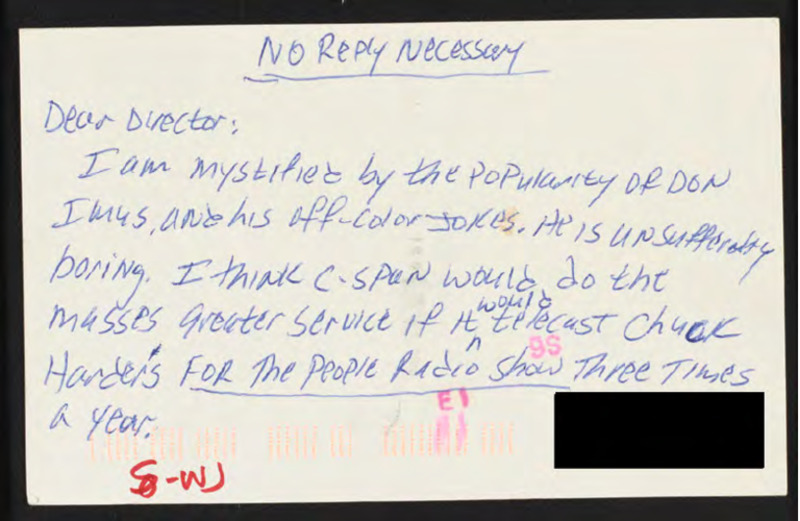 NO Reply Necessary
Dear Director:
I am mystified by the Popularity of DON
Imus, and his off-color jokes. He is unsufferably
boring. I think C-SPAN would do the
masses greater service if it would telecast Chuck
Harder's FOR The People Radio show Three Times
a year.